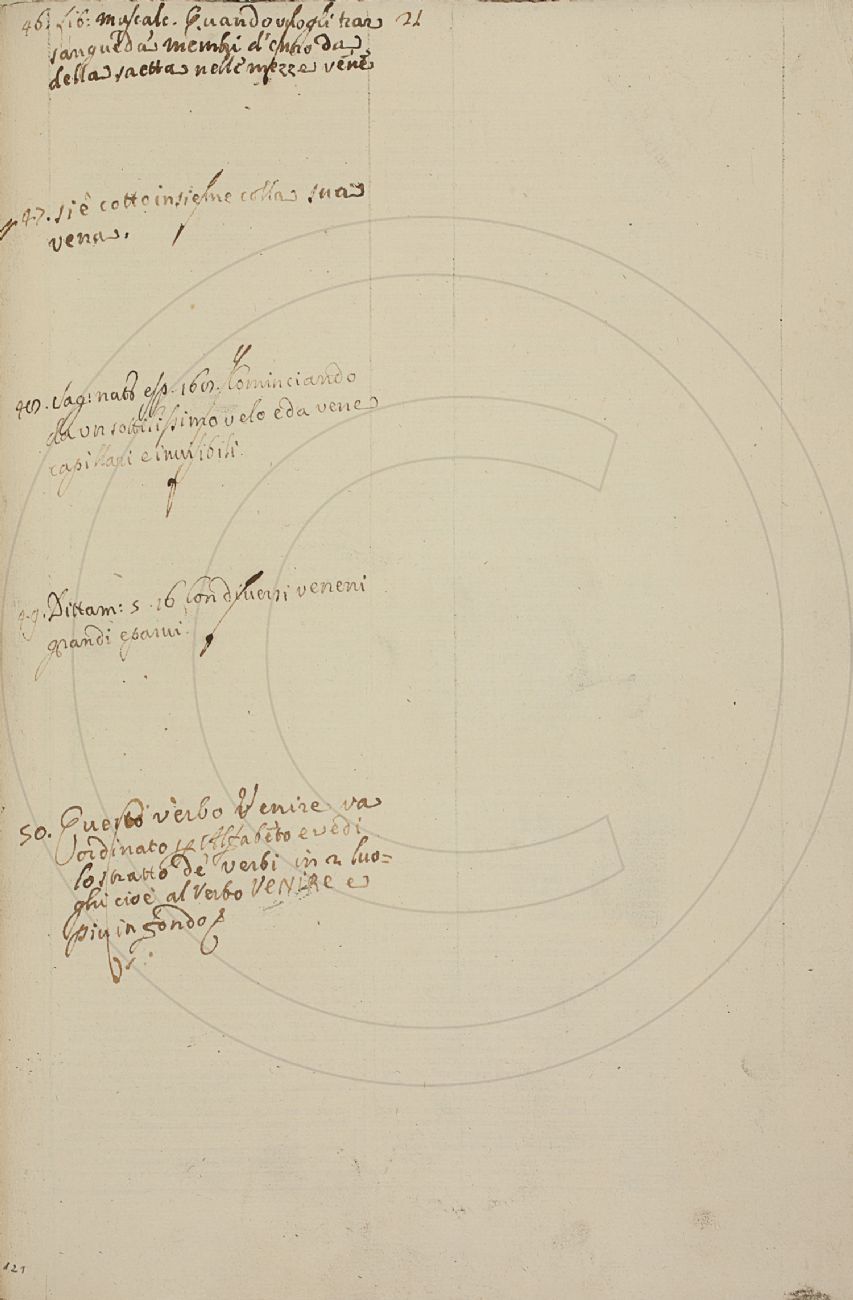 46. Lib: mascalc. Quando vogli trar 21
sangue da membri d'entro da
della saetta nelle mezze vene
47. si è cotto insieme colla sua
vena.
48. Sag: nat: esp. 160. Cominciando
da un sottilissimo velo e da vene
capillari e invisibili.
49. Dittam: 5. 16 Con diversi veneni
grandi e parvi.
50. Questo verbo Venire va
ordinato p Alfabeto e vedi
lo stratto de verbi in 2 luo=
ghi cioè al verbo VENIRE e
piu in fondo
121